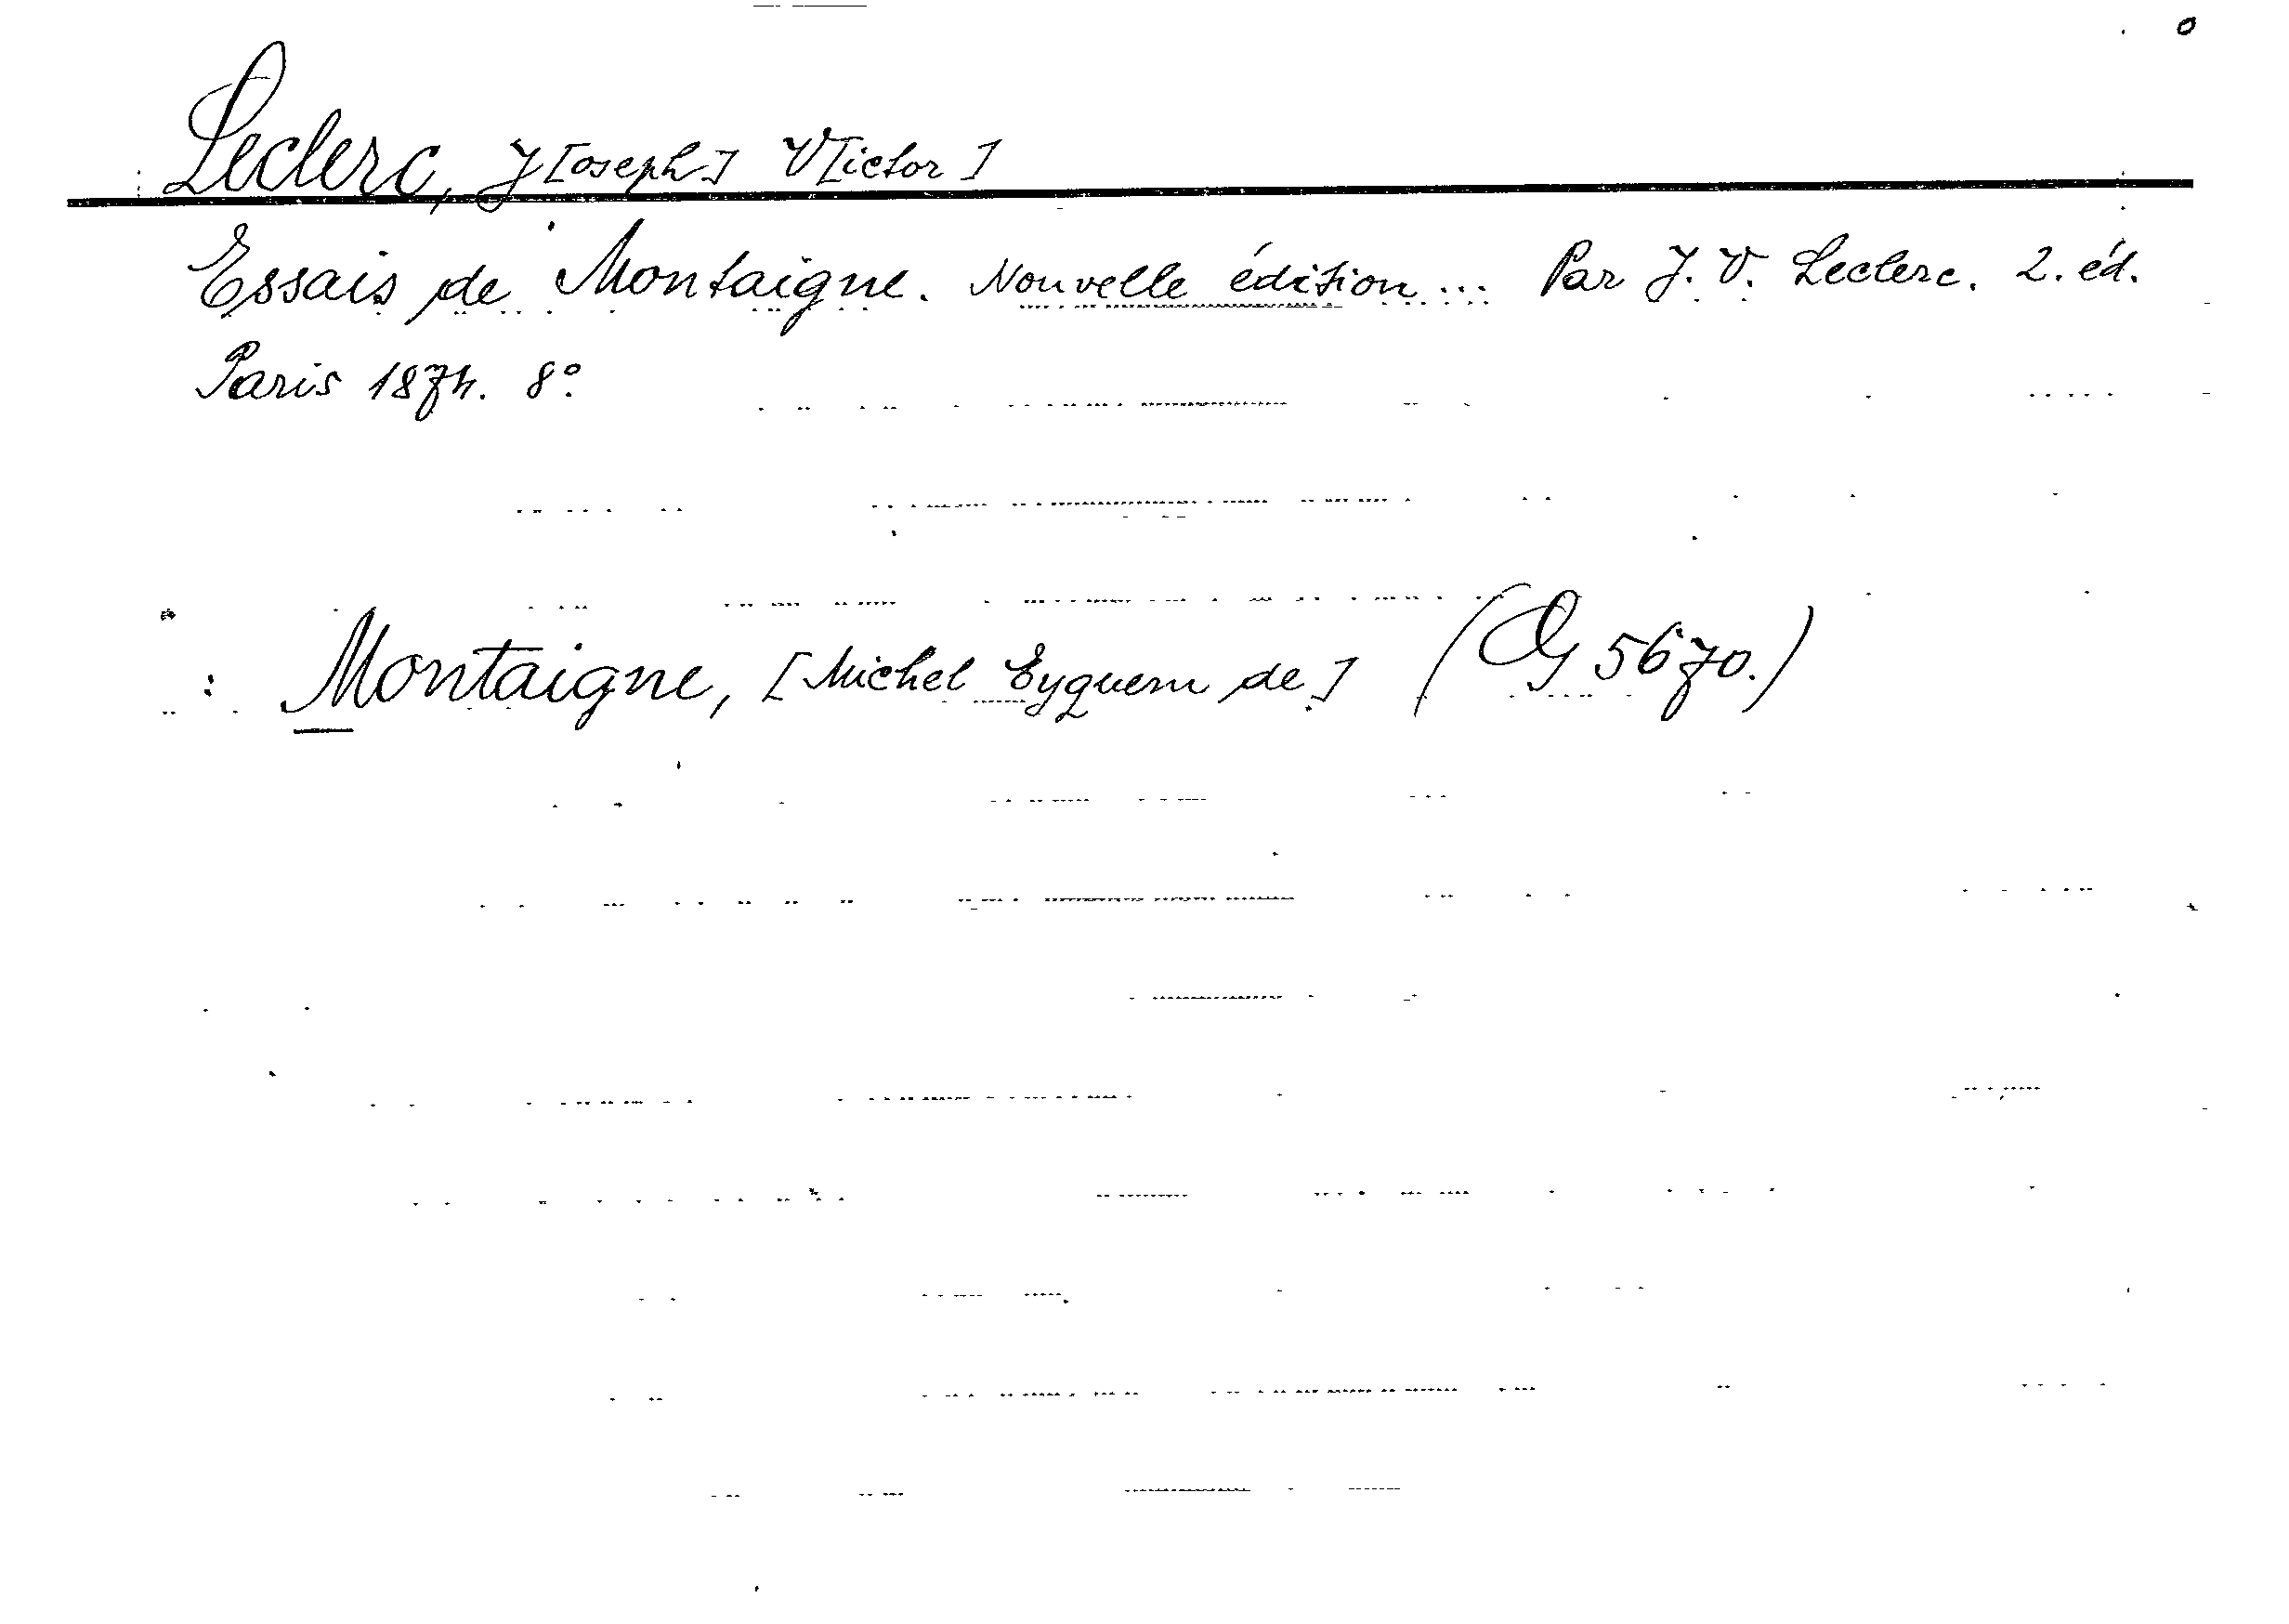 Leclerc, J[oseph] V[ictor]
Essais de Montaigne. Nouvelle édition... Par J. V. Leclerc. 2. éd.
Paris 1874. 8°
: Montaigne, [Michel Eyquem de] (Og 5670.)